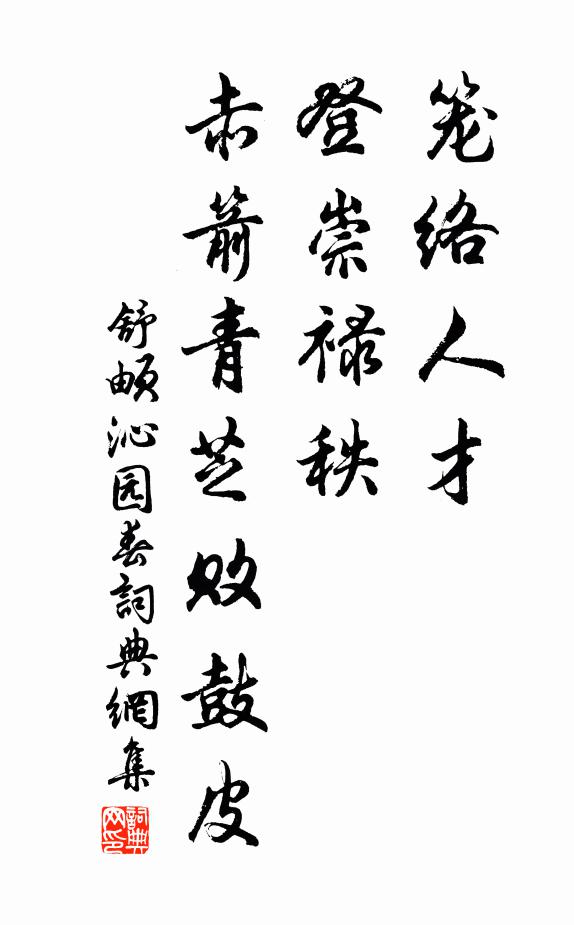 笼络人才
登崇禄秩
赤箭青芝败鼓皮
舒頔沁园春詞典網集
詞典
网印